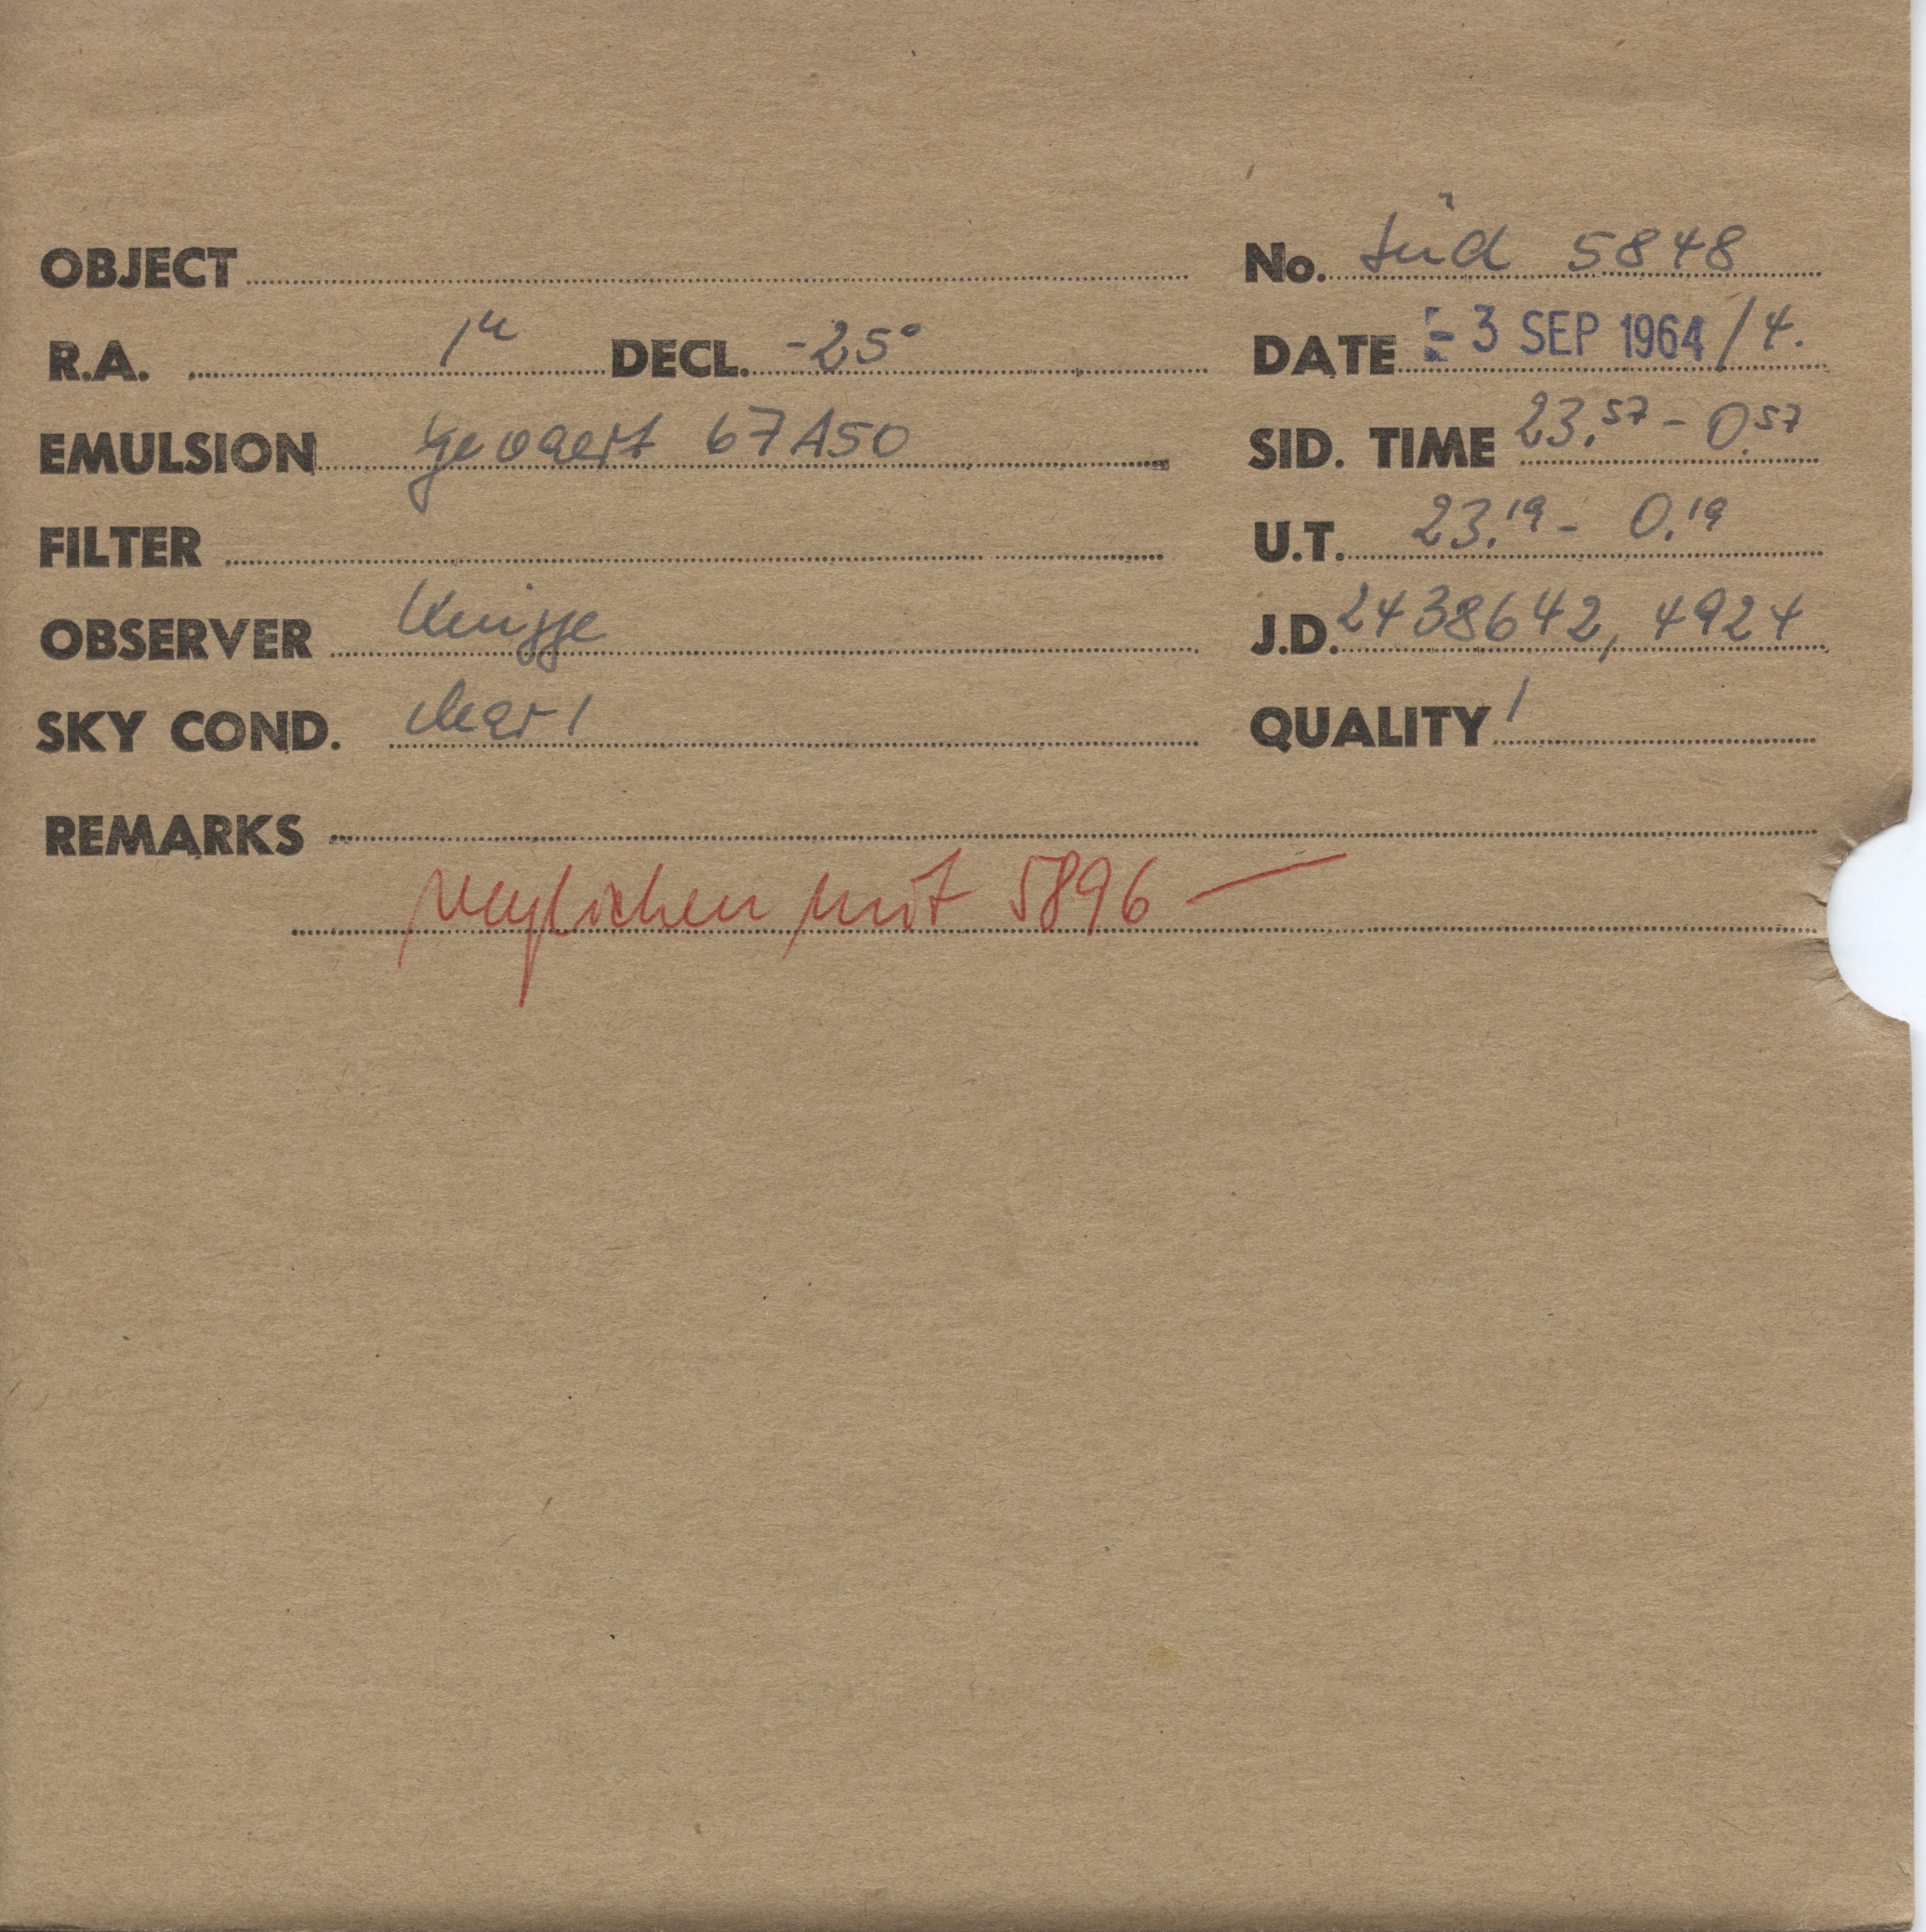 OBJECT No. Süd 5848
R.A. 1h DECL. -25° DATE -3 SEP 1964 / 4.
EMULSION Gevaert 67A50 SID. TIME 23.57 - 0.57
FILTER U.T. 23.19 - 0.19
OBSERVER Knigge J.D. 2438642,4924
SKY COND. clear 1 QUALITY 1
REMARKS
verglichen mit 5896 —